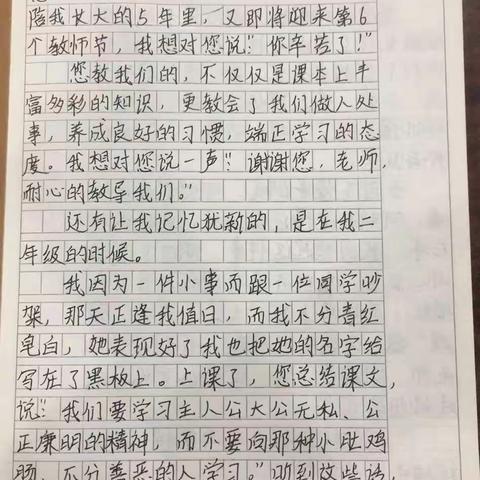 陪我长大的5年里，又即将迎来第6
个教师节，我想对您说："你辛苦了！"
您教我们的，不仅仅是课本上丰
富多彩的知识，更教会了我们做人处
事，养成良好的习惯，端正学习的态
度。我想对您说一声："谢谢您，老师，
耐心的教导我们。"
还有让我记忆犹新的，是在我二
年级的时候。
我因为一件小事而跟一位同学吵
架，那天正逢我值日，而我不分青红
皂白，她表现好了我也把她的名字给
写在了黑板上。上课了，您总结课文，
说："我们要学习主人公大公无私、公
正廉明的精神，而不要向那种小肚鸡
肠、不分善恶的人学习。"听到这些话，